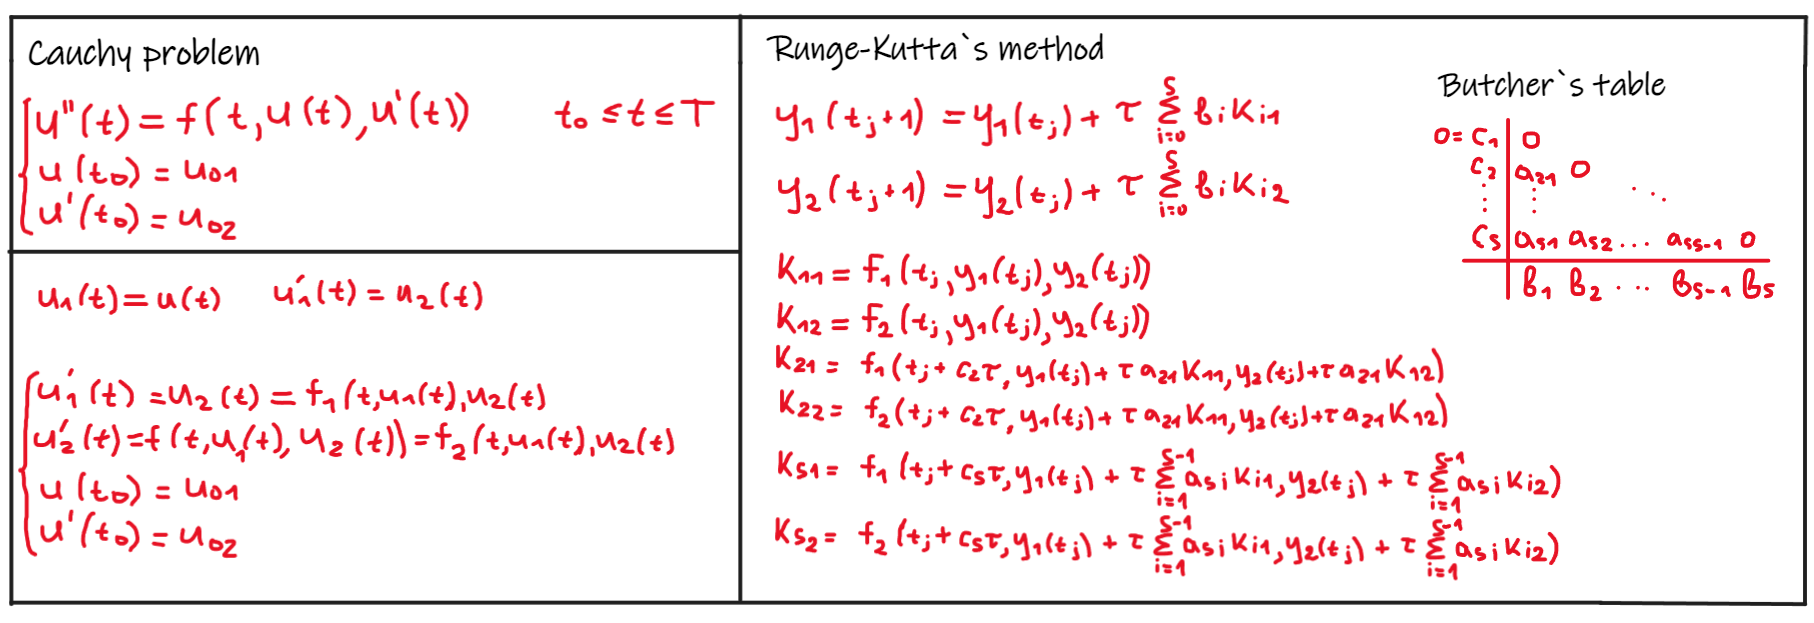 Cauchy problem
u''(t) = f(t, u(t), u'(t)) t₀ ≤ t ≤ T
u(t₀) = u₀₁
u'(t₀) = u₀₂
u₁(t) = u(t) u₁'(t) = u₂(t)
u₁'(t) = u₂(t) = f₁(t, u₁(t), u₂(t)
u₂'(t) = f(t, u₁(t), u₂(t)) = f₂(t, u₁(t), u₂(t)
u(t₀) = u₀₁
u'(t₀) = u₀₂
Runge-Kutta`s method
y₁(t_{j+1}) = y₁(t_j) + τ Σ_{i=0}^{s} b_i K_{i1}
y₂(t_{j+1}) = y₂(t_j) + τ Σ_{i=0}^{s} b_i K_{i2}
K₁₁ = f₁(t_j, y₁(t_j), y₂(t_j))
K₁₂ = f₂(t_j, y₁(t_j), y₂(t_j))
K₂₁ = f₁(t_j + c₂τ, y₁(t_j) + τ a₂₁ K₁₁, y₂(t_j) + τ a₂₁ K₁₂)
K₂₂ = f₂(t_j + c₂τ, y₁(t_j) + τ a₂₁ K₁₁, y₂(t_j) + τ a₂₁ K₁₂)
K_{s1} = f₁(t_j + c_sτ, y₁(t_j) + τ Σ_{i=1}^{s-1} a_{si} K_{i1}, y₂(t_j) + τ Σ_{i=1}^{s-1} a_{si} K_{i2})
K_{s2} = f₂(t_j + c_sτ, y₁(t_j) + τ Σ_{i=1}^{s-1} a_{si} K_{i1}, y₂(t_j) + τ Σ_{i=1}^{s-1} a_{si} K_{i2})
Butcher`s table
0 = c₁ 0
c₂ a₂₁ 0
⋮ ⋮ ⋱
c_s a_{s1} a_{s2} ... a_{ss-1} 0
b₁ b₂ ... b_{s-1} b_s